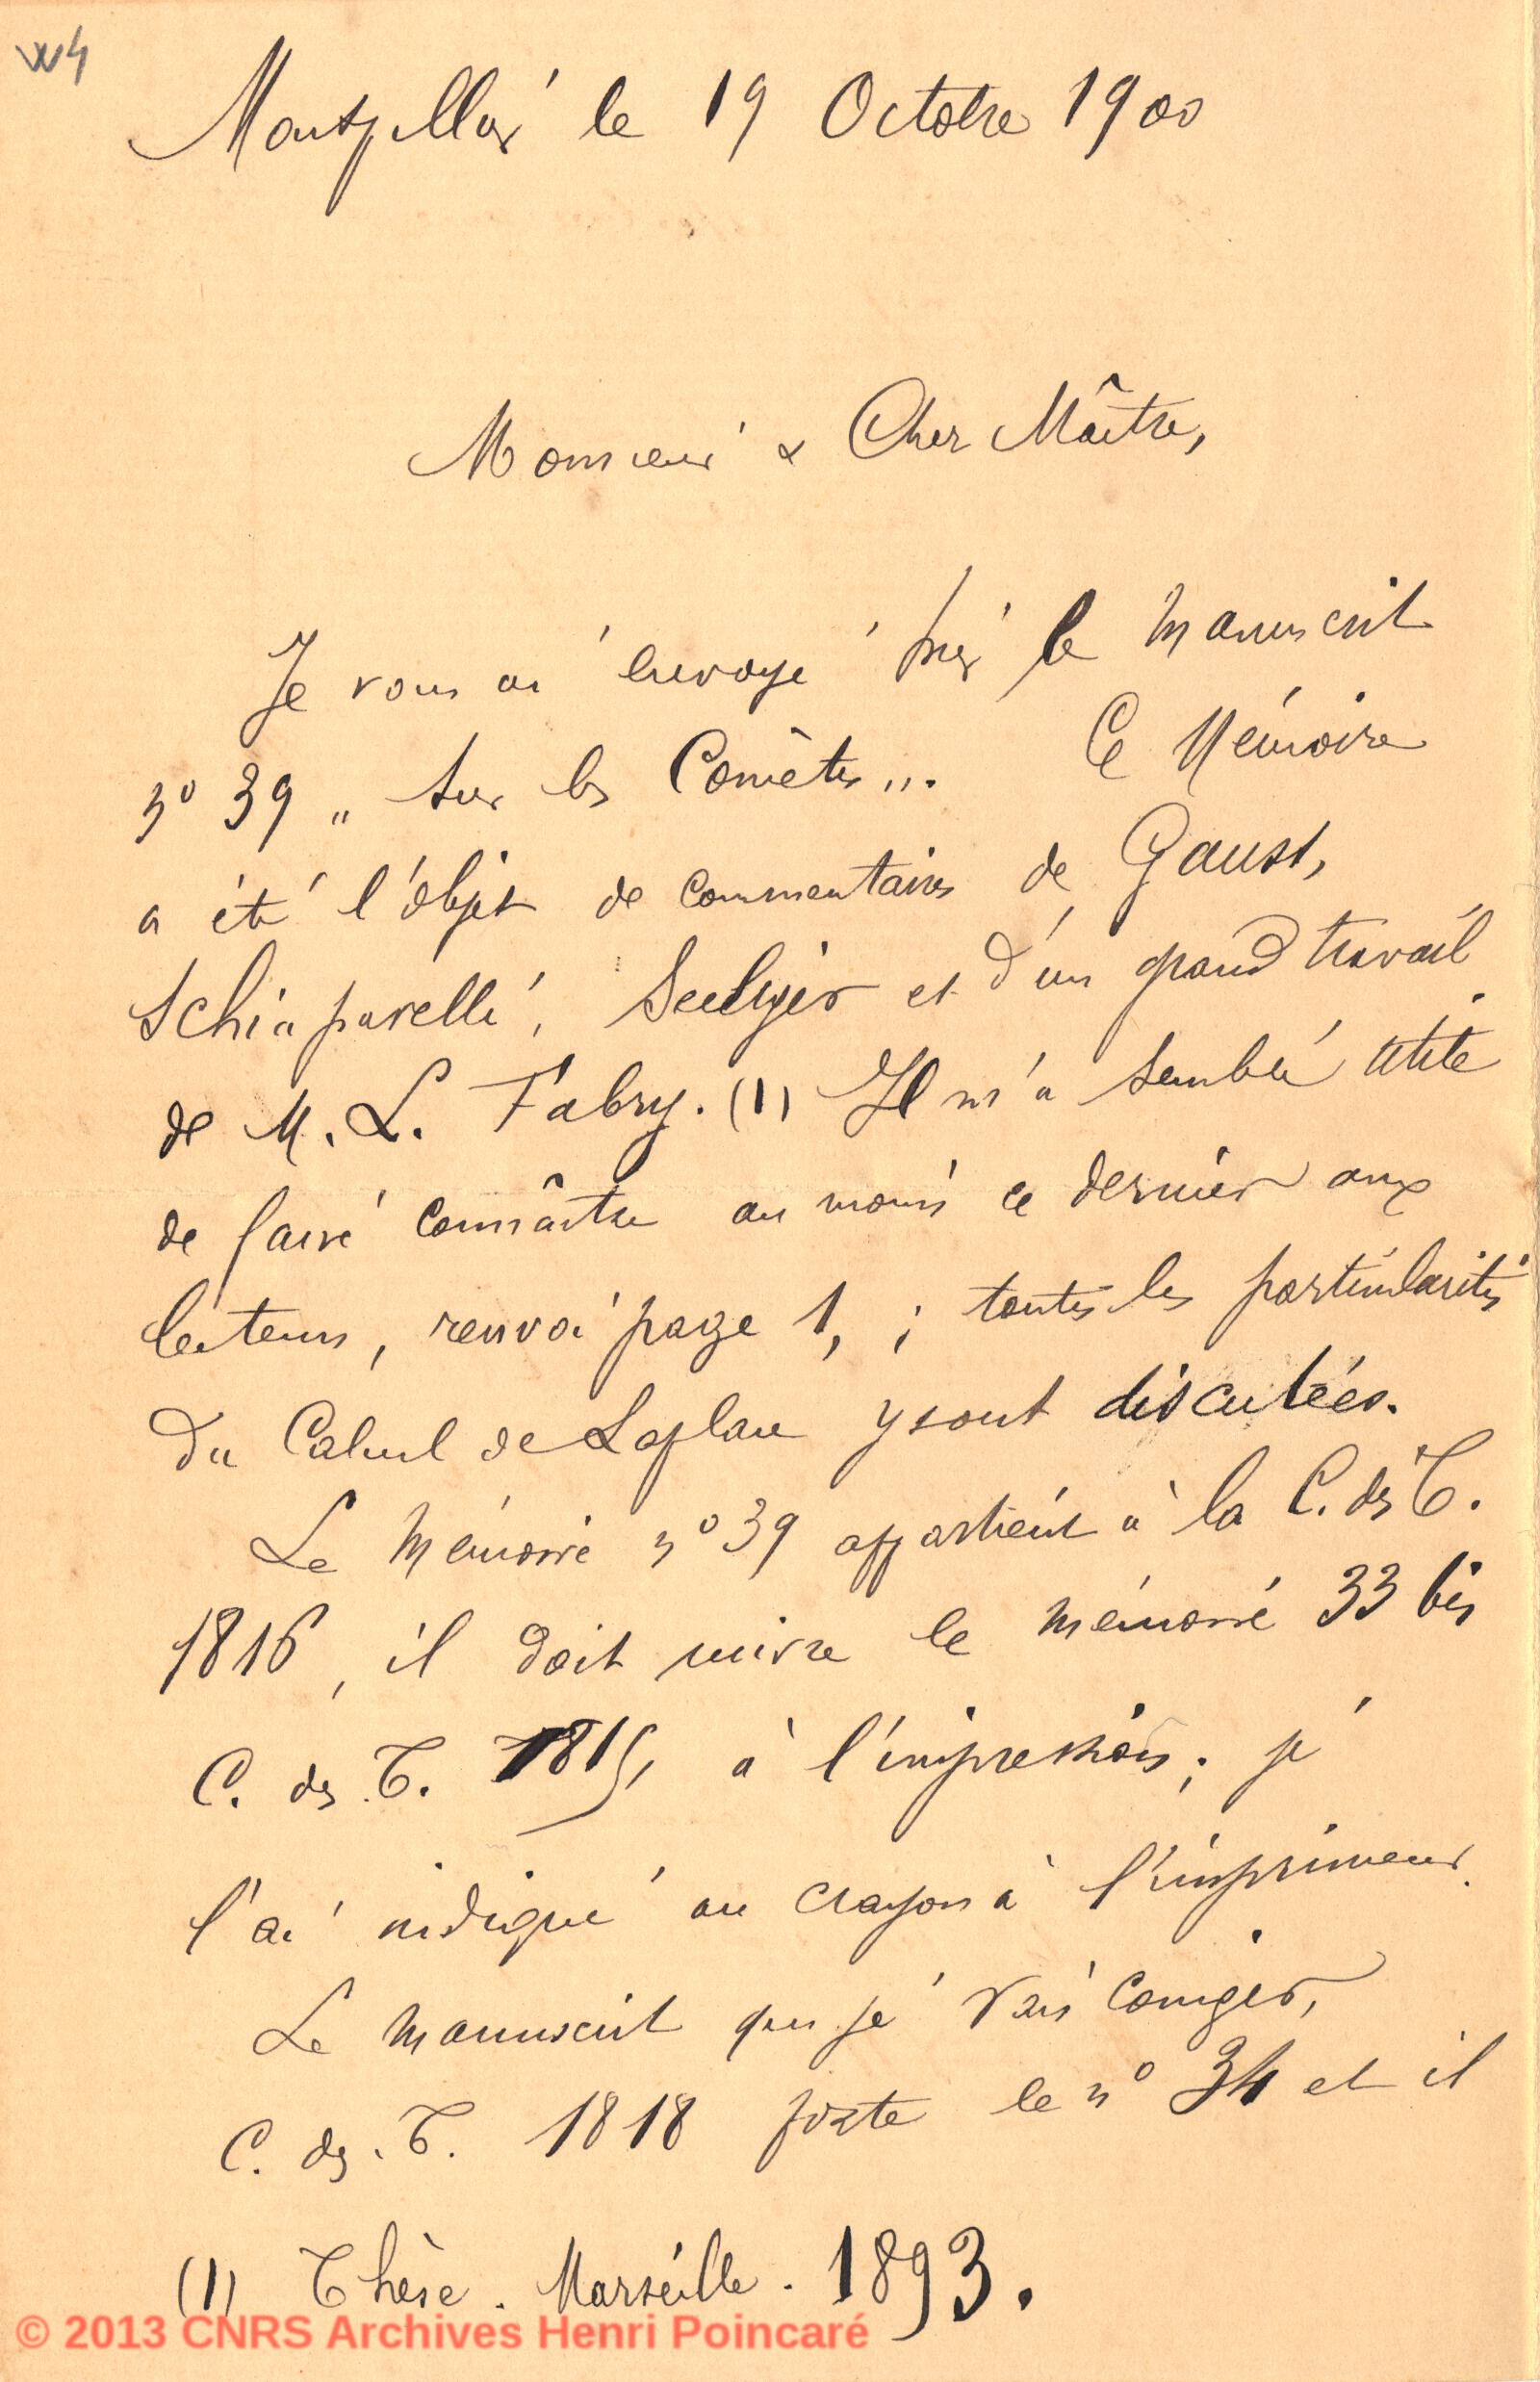 W4
Montpellier le 19 Octobre 1900
Monsieur & Cher Maître,
Je vous ai envoyé hier le manuscrit
nº 39 " Sur les Comètes ". Ce Mémoire
a été l'objet de commentaires de Gauss,
Schiaparelli, Seeliger et d'un grand travail
de M. L. Fabry. (1) Il m'a semblé utile
de faire connaître au moins ce dernier aux
lecteurs, renvoi page 1, ; toutes les particularités
du Calcul de Laplace y sont discutées.
Le Mémoire nº 39 appartient à la C. des T.
1816, il doit suivre le mémoire 33 bis
C. des T. 1815, à l'impression ; je
l'ai indiqué au crayon à l'imprimeur.
Le manuscrit que je vais corriger,
C. des T. 1818 porte le nº 34 et il
(1) Thèse. Marseille. 1893.
© 2013 CNRS Archives Henri Poincaré